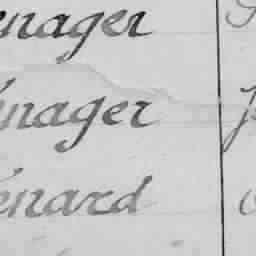 enager
énager
enard